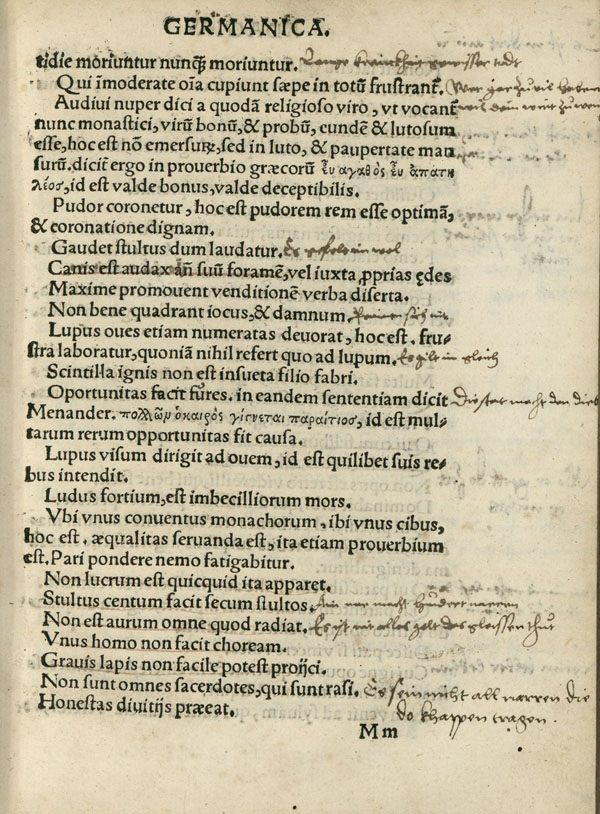 GERMANICA.
tidie moriuntur nunqꝫ moriuntur. Lange kranckheit gewisser todt
Qui īmoderate oīa cupiunt sæpe in totū frustrant̃. Wer gar zu vil haben
Audiui nuper dici a quodā religioso viro, vt vocant wil dem wirt zu wenig
nunc monastici, virū bonū, & probū, eundē & lutosum
esse, hoc est nō emersurꝫ, sed in luto, & paupertate man
surū. dicit̃ ergo in prouerbio græcorū ἒυ αγαθὸς ἒυ ἀπατη
λέος, id est valde bonus, valde deceptibilis.
Pudor coronetur, hoc est pudorem rem esse optimā,
& coronatione dignam.
Gaudet stultus dum laudatur. Es gefelt im wol
Canis est audax añ suū foramē, vel iuxta ꝓprias ędes
Maxime promouent venditionē verba diserta.
Non bene quadrant iocus, & damnum. sich nit
Lupus oues etiam numeratas deuorat, hoc est. fru-
stra laboratur, quoniā nihil refert quo ad lupum. Es gilt im gleich
Scintilla ignis non est insueta filio fabri.
Oportunitas facit fures. in eandem sententiam dicit Die stat macht den dieb
Menander. πολλῶν ὁκαιρὸς γίγνεται παραίτιος, id est mul-
tarum rerum opportunitas fit causa.
Lupus visum dirigit ad ouem, id est quilibet suis re-
bus intendit.
Ludus fortium, est imbecilliorum mors.
Vbi vnus conuentus monachorum, ibi vnus cibus,
hoc est. æqualitas seruanda est, ita etiam prouerbium
est. Pari pondere nemo fatigabitur.
Non lucrum est quicquid ita apparet.
Stultus centum facit secum stultos. Ain nar macht hundert narren
Non est aurum omne quod radiat. Es ist nit alles golt das gleissen thut
Vnus homo non facit choream.
Grauis lapis non facile potest proijci.
Non sunt omnes sacerdotes, qui sunt rasi. Es sein nicht all narren die
do khappen tragen.
Honestas diuitijs præeat.
Mm